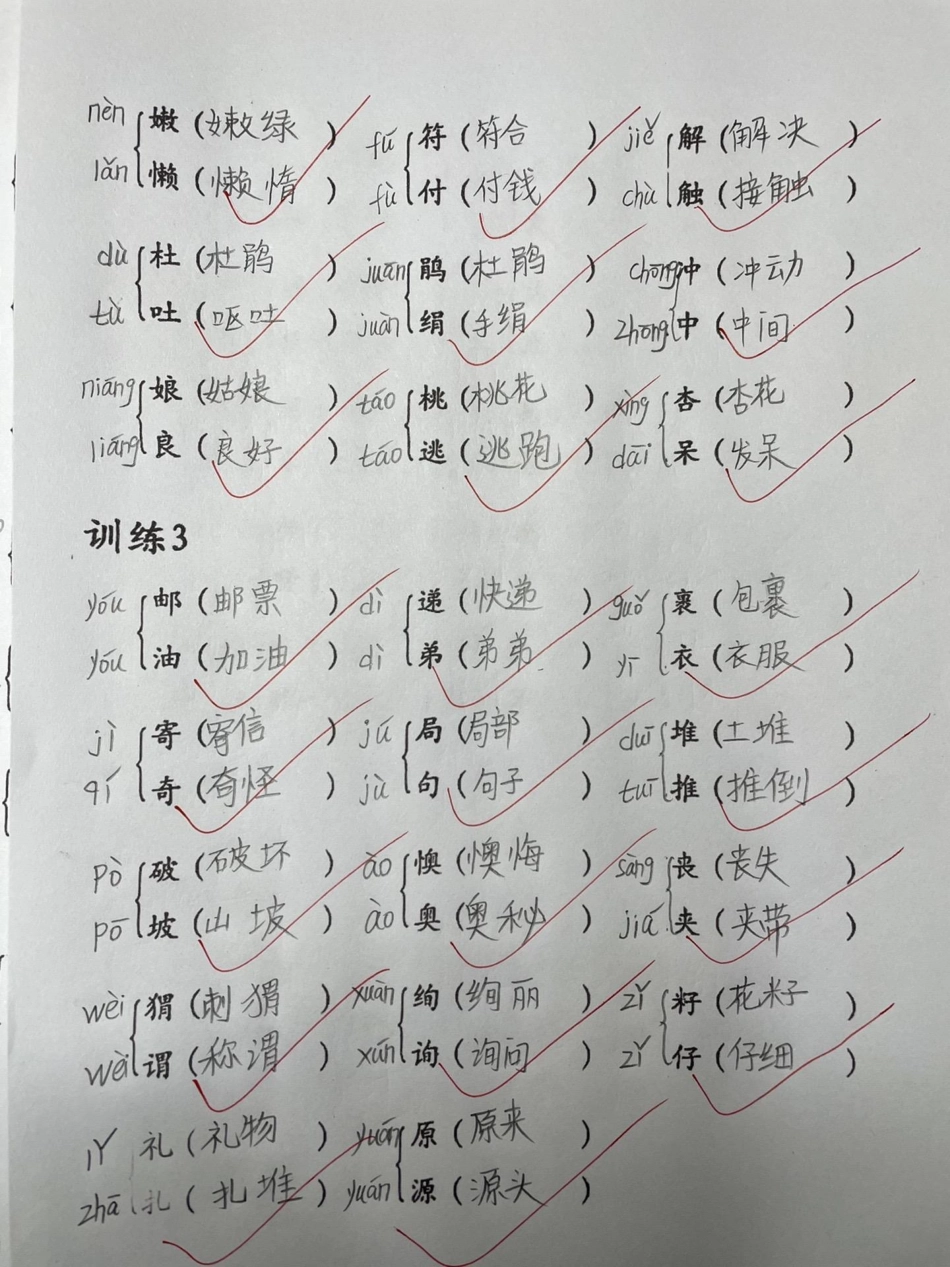 nèn 嫩（嫩绿） fú 符（符合） jiě 解（解决）
lǎn 懒（懒惰） fù 付（付钱） chù 触（接触）
dù 杜（杜鹃） juān 鹃（杜鹃） chōng 冲（冲动）
tù 吐（呕吐） juàn 绢（手绢） zhōng 中（中间）
niáng 娘（姑娘） táo 桃（桃花） xìng 杏（杏花）
liáng 良（良好） táo 逃（逃跑） dāi 呆（发呆）
训练3
yóu 邮（邮票） dì 递（快递） guǒ 裹（包裹）
yóu 油（加油） dì 弟（弟弟） yī 衣（衣服）
jì 寄（寄信） jú 局（局部） duī 堆（土堆）
qí 奇（奇怪） jù 句（句子） tuī 推（推倒）
pò 破（破坏） ào 懊（懊悔） sàng 丧（丧失）
pō 坡（山坡） ào 奥（奥秘） jiā 夹（夹带）
wèi 猬（刺猬） xuàn 绚（绚丽） zǐ 籽（花籽）
wèi 谓（称谓） xún 询（询问） zǐ 仔（仔细）
lǐ 礼（礼物） yuán 原（原来）
zhā 扎（扎堆） yuán 源（源头）